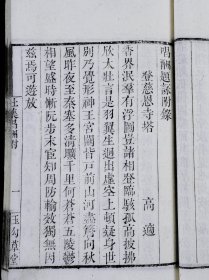 唱酬題詠附錄
登慈恩寺塔 高適
香界泯羣有浮圖豈諸相登臨駭孤高披拂
欣大壯言是羽翼生迥出虛空上頓疑身世
別乃覺形神王宮闕皆戶前山河盡簷向秋
風昨夜至秦塞多清曠千里何蒼蒼五陵鬱
相望盛時慚阮步末宦知周防輸效獨無因
茲焉可遊放
杜集唱酬附
玉勾草堂